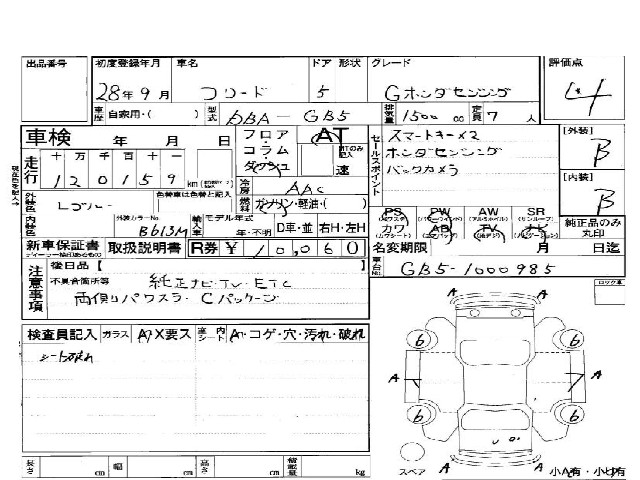 出品番号 初度登録年月 車名 ドア 形状 グレード 評価点
28年9月 フリード 5 Gホンダセンシング 4
車歴 自家用・( ) 型式 DBA-GB5 排気量 1500 cc 定員 7 人
車検 年 月 日 フロア・コラム・ダッシュ AT 速
セールスポイント スマートキー×2
ホンダセンシング
バックカメラ
[外装] B
[内装] B
走行 十 万 千 百 十 一
120159 km
冷房 AAC
燃料 ガソリン・軽油・( )
外装色 Lブルー 色替車は色替と記入
内装色 外装カラーNo. B613M 輸入車 モデル年式 年・不明 D車・並 右H・左H
PS PW AW SR
(パワーウィンドウ) (アルミホイル) (サンルーフ)
カワ AB TV ナビ
(カワシート) (エアバッグ)
純正品のみ丸印
新車保証書 取扱説明書 R券 ¥10,060 名変期限 月 日迄
車台No. GB5-1000985
注意事項 後日品【
不具合箇所等 純正ナビ・TV・ETC
両側パワスラ・Cパッケージ
ロック車
検査員記入 ガラス A・X要ス 室内 シート A・コゲ・穴・汚れ・破れ
A A
6 6
A A
6 6
A
スペア 小A有・小U有
長さ cm 幅 cm 高さ cm 積載量 kg